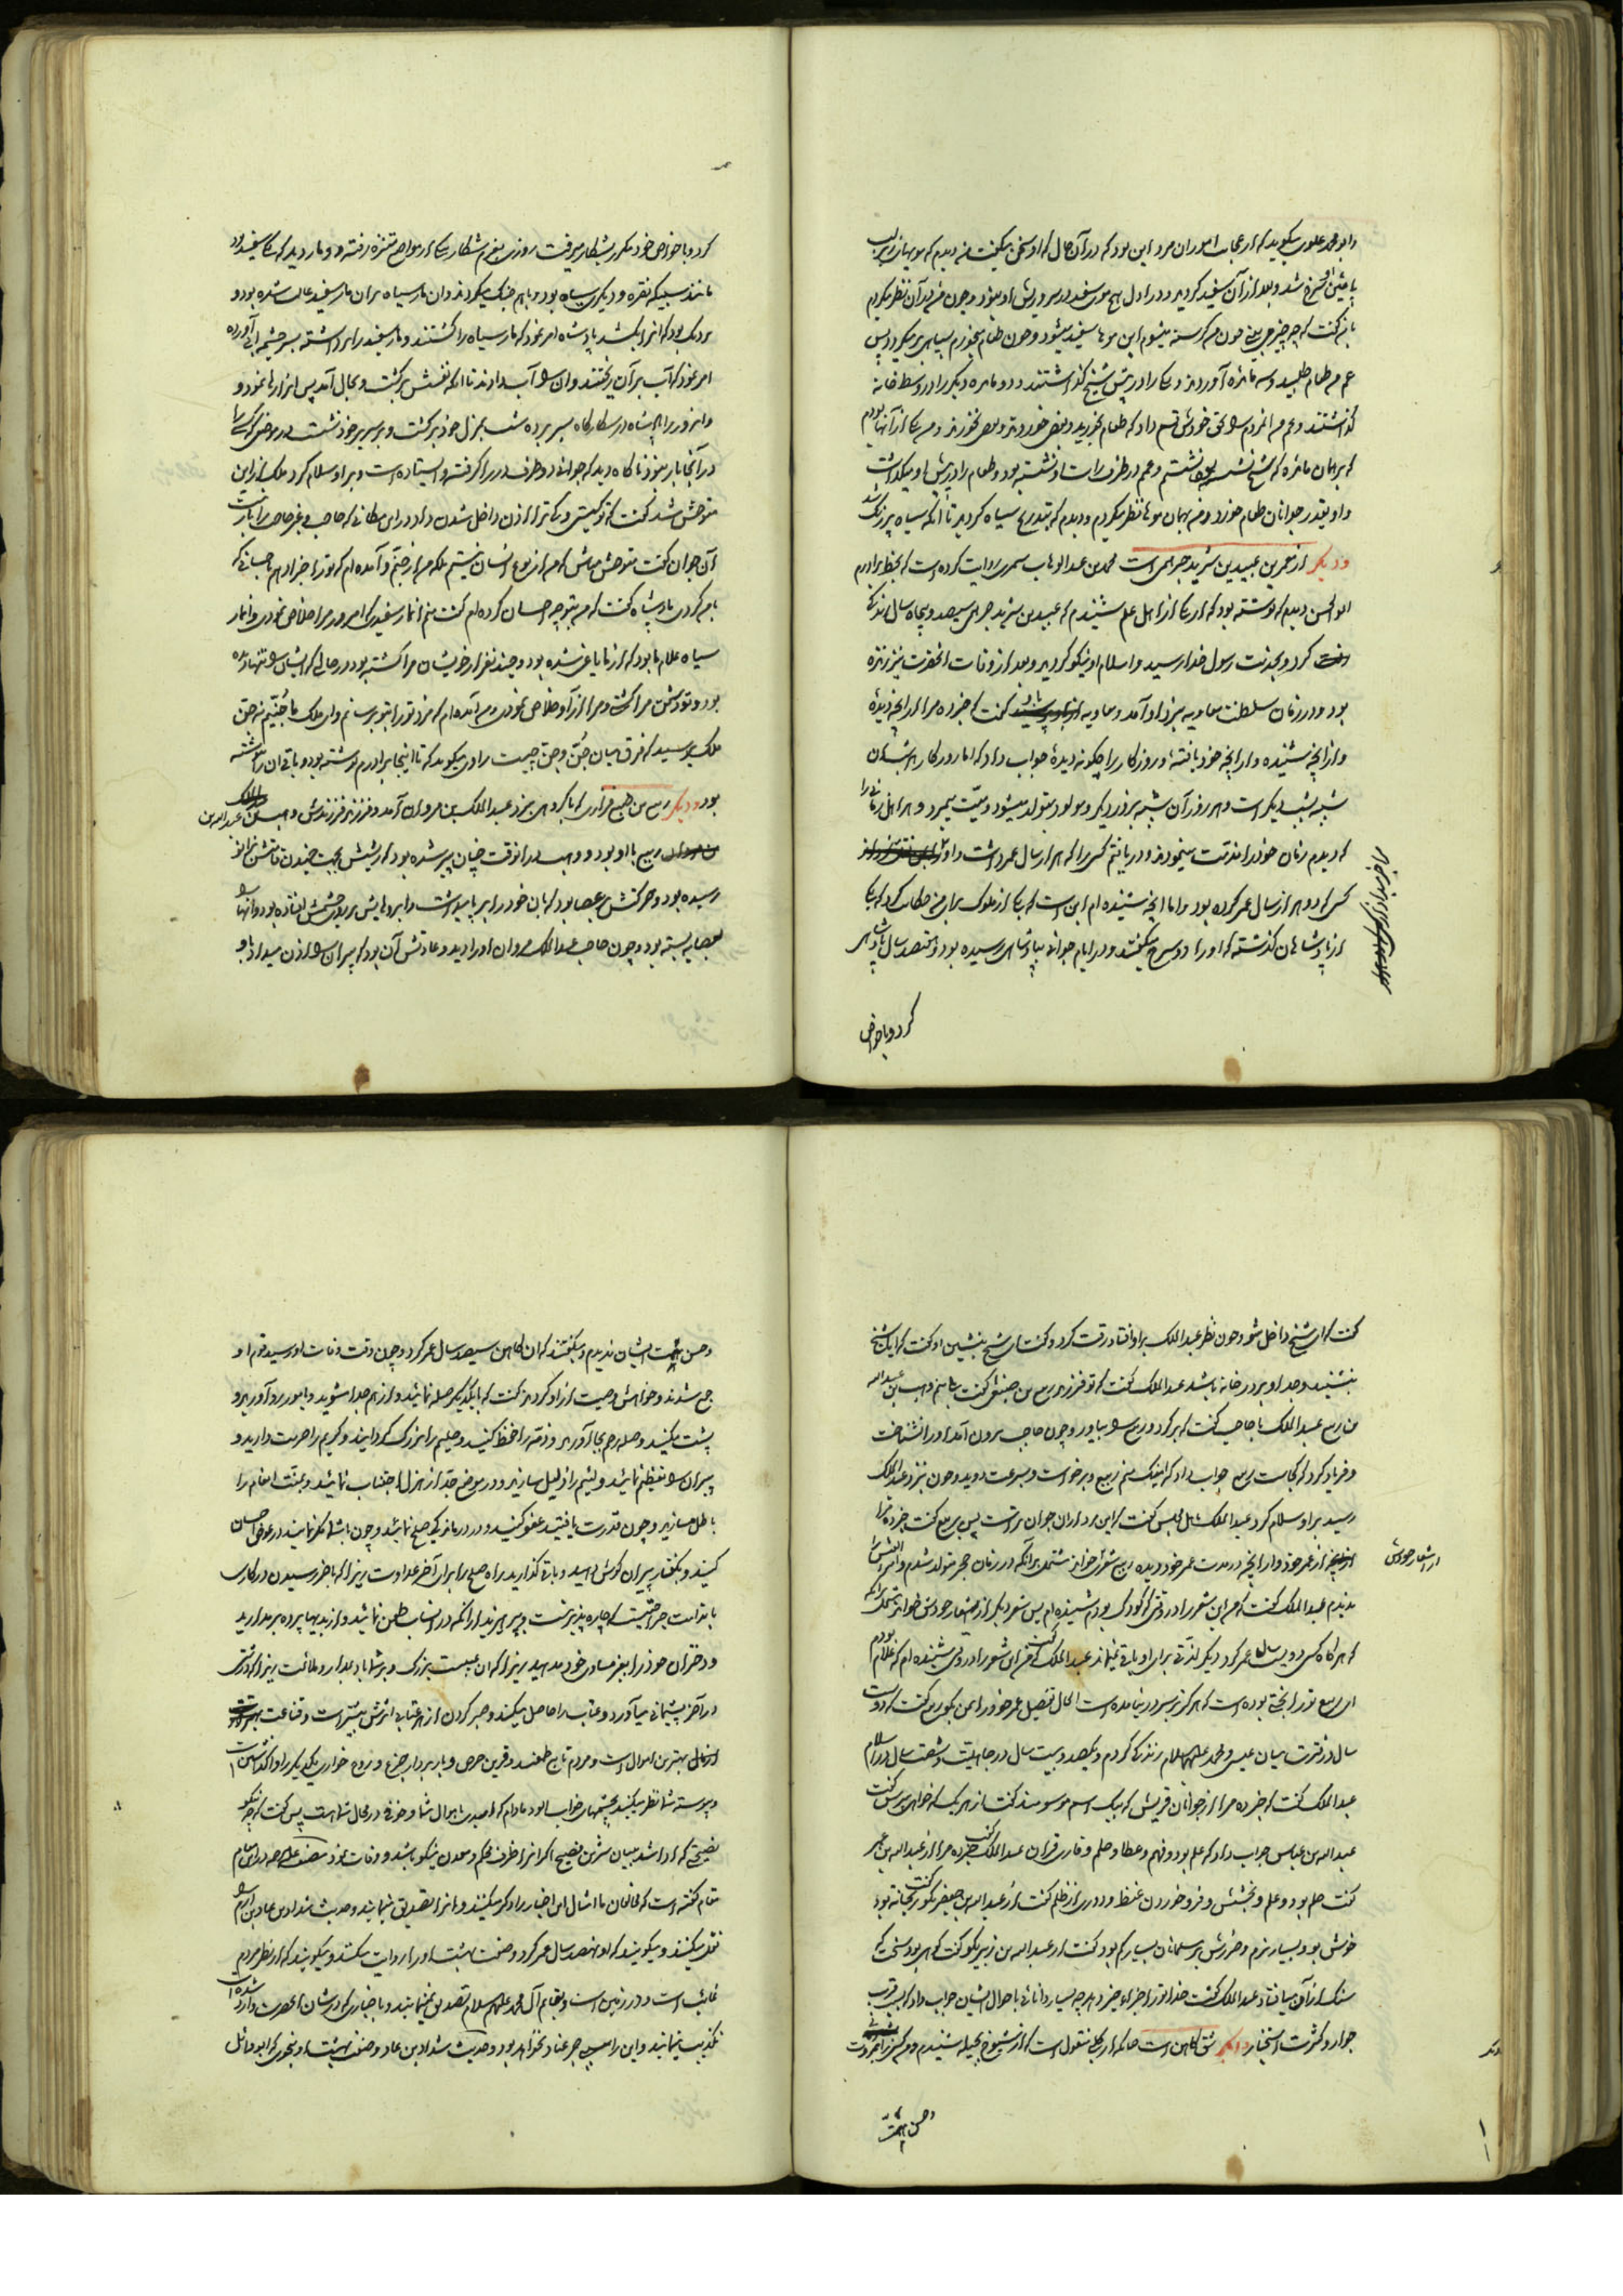 و ابو محمد علوی میگوید که از عجایب امور آن مرد این بود که در آن حال که او سخن میگفت من دیدم که موهای زیر لب
پائینش سرخ شد و بعد از آن سفید گردید و در اول هیچ موی سفید در سر و ریش او نبود و چون من بر آن نظر میکردم
بمن گفت که چه چیز می بینی چون من گرسنه میشوم این موها سفید میشود و چون طعام میخورم بسیاهی بر میگردد پس
عم من طعام طلبید و سه مائده آوردند و یکی را در پیش شیخ گذاشتند و دو مائده دیگر را در وسط خانه
گذاشتند و عم من آنمردم را بحق خودش قسم داد که طعام بخورید و بعضی خوردند و بعضی نخوردند و من یکی از آنها بودم
که بر همان مائده که شیخ نشسته بود نشستم و عم در طرف راست او نشسته بود و طعام را در پیش او میگذاشت
و او بقدر جوانان طعام خورد و من بهمان موها نظر میکردم و دیدم که بتدریج سیاه گردید تا آنکه سیاه پررنگ شد
و دیگر از معمرین عبید بن شرید جرهمی است محمد بن عبد الوهاب سمری روایت کرده است که بخط برادرم
ابو الحسن دیدم که نوشته بود که از یکی از اهل علم شنیدم که عبید بن شرید جرهمی سیصد و پنجاه سال زندگی
کرد و بخدمت رسول خدا رسید و اسلام او نیکو گردید و بعد از وفات آنحضرت نیز زنده
بود و در زمان سلطنت معاویه بنزد او آمد و معاویه باو گفت که خبر ده مرا از آنچه دیدهٔ
و از آنچه شنیده و از آنچه خود یافتهٔ و روزگار را چگونه دیدهٔ جواب داد که اما روزگار پس شب آن
شبیه بشب دیگر است و هر روز آن شبیه بروز دیگر و مولود متولد میشود و میّت میمیرد و هر اهل زمانی را
که دیدم زمان خود را مذمّت مینمودند و دریافتم کسی را که هزار سال عمر داشت و او
کسی که دو هزار سال عمر کرده بود و اما آنچه شنیده ام این است که یکی از ملوک برای من حکایت کرد که یکی
از پادشاهان گذشته که او را دوسرح میگفتند و در ایام جوانی بپادشاهی رسیده بود و هفتصد سال پادشاهی
کرد و با خواص
کرد و با خواص خود مکرر بشکار میرفت روزی بعزم شکار بیکی از مواضع متنزه رفته و دو مار دید که یکی سفید بود
مانند سبیکه نقره و دیگری سیاه بود و با هم جنگ میکردند و آن مار سیاه بر آن مار سفید غالب شده بود و
نزدیک بود که آنرا بکشد پادشاه امر نمود که مار سیاه را کشتند و مار سفید را برداشته بسر چشمه آبی آورده
امر نمود که آب بر آن ریختند و آن را آب دادند تا آنکه نفسش برگشت و بحال آمد پس آنرا رها نمود و
و آنروز را پادشاه در شکارگاه بسر برده شب بمنزل خود برگشت و بر سریر خود نشست در موضعی که کسی را
در آنجا بار نبود ناگاه دید که جوانی دو طرف در را گرفته و ایستاده است و بر او سلام کرد ملک از این
متوحش شد گفت که تو کیستی و که ترا اذن داخل شدن داد در این مکانی که حاجب و غیر حاجب را بار نیست
آن جوان گفت متوحش مباش که من از نوع انسان نیستم بلکه من از جنّم و آمده ام که ترا جزا دهم باحسانی که
بمن کردی پادشاه گفت که من بتو چه احسان کرده ام گفت منم آنمار سفیدی که امروز مرا خلاص نمودی و آنمار
سیاه غلام ما بود که از ما یاغی شده بود و چند نفر از خویشان مرا کشته بود در حالی که ایشان را تنها دیده
بود و تو دشمن مرا کشتی و مرا از او خلاص نمودی و من آمده ام که مزد تو را بتو برسانم و ای ملک ما جنّیم نه حن
ملک پرسید که فرق میان جن و حن چیست راوی میگوید که تا اینجا برادرم نوشته بود و باقی آن را ننوشته
بود و دیگر ربیع بن ضبیع فزاری که با گروهی بنزد عبد الملک بن مروان آمد و فرزند فرزندش وهب بن عبد الله بن
ربیع با او بود و وهب در آنوقت چنان پیر شده بود که از شیبش
رسیده بود و حرکتش بعصا بود که بآن خود را بر پا میداشت و ابروهایش بر روی چشمش افتاده بود و آنها را
بعصابه بسته بود و چون حاجب عبد الملک مروان او را دید و عادتش آن بود که پیران را اذن میداد باو
گفت که ای شیخ داخل شو و چون نظر عبد الملک بر او افتاد رقت کرد و گفت ای شیخ بنشین او گفت که آیا شیخ
بنشیند و جد او بر در خانه باشد عبد الملک گفت که تو فرزند ربیع بن ضبیع گفت بلی منم وهب بن عبد الله
بن ربیع عبد الملک با حاجب گفت که برگرد و ربیع را بیاور و چون حاجب بیرون آمد او را نشناخت
و فریاد کرد که کجاست ربیع جواب داد که اینک منم ربیع و برخواست و بسرعت دوید و چون بنزد عبد الملک
رسید بر او سلام کرد عبد الملک باهل مجلس گفت که این مرد از آن جوان تر است پس بربیع گفت خبر ده مرا
از عمر خود و از آنچه در مدت عمر خود دیده ربیع شعری خواند مشتمل بر آنکه در زمان حجر متولد شدم و امرء القیس را
ندیدم عبد الملک گفت که من این شعر را در وقتی که کودک بودم شنیده ام پس شعر دیگر از اشعار خودش خواند مشتمل بر آنکه
از اشعار خودش
که هر گاه کسی دویست سال عمر کرد دیگر لذتی برای او باقی نمی‌ماند عبد الملک گفت من این شعر را در وقتی شنیده ام که غلام بودم
ای ربیع تو را بختی بوده است که هرگز بسر در نیامده است الحال تفصیل عمر خود را بمن بگو ربیع گفت که دویست
سال در فترت میان عیسی و محمد علیهما السلام زندگی کردم و یکصد و بیست سال در جاهلیت و شصت سال در اسلام
عبد الملک گفت که خبر ده مرا از جوانان قریش که بیک اسم موسومند گفت از هر یک که خواهی بپرس گفت
عبد الله بن عباس جواب داد که علم بود و فهم و عطا و حلم و قاری قران عبد الملک گفت خبر ده مرا از عبد الله بن عمر
گفت حلم بود و علم و بخشش و فرو خوردن غیظ و دوری از ظلم گفت از عبد الله بن جعفر بگو گفت ریحانه بود
خوش بو و بسیار نرم و ضررش بر مسلمانان بسیار کم بود گفت از عبد الله بن زبیر بگو گفت کوهی بود سخت که
سنگ از آن میافتاد عبد الملک گفت خدا تو را جزای خیر دهد چه بسیار دانائی باحوال ایشان جواب داد که بسبب قرب
جوار و کثرت استخبار و دیگر شق کاهن است چنانکه از کلبی منقول است که از شیوخ بجیله شنیدم و من کسی را
و حسن هیئت
و حسن هیئت ایشان ندیدم و میگفتند که آن کاهن سیصد سال عمر کرد و چون وقت وفات او رسید قوم او
جمع شدند و خواهش وصیت از او کردند گفت که با یکدیگر صله نمائید و از هم جدا مشوید و
پشت مکنید و صله رحم بجا آورید و ذمّه را حفظ کنید و حلیم را بزرگ گردانید و کریم را حرمت دارید و
پیران را تعظیم نمائید و لئیم را ذلیل سازید و در موضع جدّ از هزل اجتناب نمائید و بمنّت انعام را
باطل مسازید و چون قدرت یافتید عفو کنید و در درماندگی صلح نمائید و چون با شما مکر نمایند در عوض احسان
کنید و بگفتار پیران گوش دهید و باقی گذارید راه صلح را برای آخر عداوت زیرا که بآخر رسیدن در کاری
جراحتیست که چاره پذیر نیست و بپرهیزید از آنکه در انساب طعن نمائید و از بدیها پرده برندارید
و دختران خود را بغیر مساوی خود مدهید زیرا که آن عیبیست بزرگ و بر شما باد بمدارا و ملائمت زیرا که درشتی
در آخر پشیمانی میآورد و عتاب را حاصل میکند و صبر کردن از هر عتابی اثرش بیشتر است و قناعت
بهترین اموال است و مردم تابع طمعند و قرین حرص و باربردار جزع و روح خواری یکدیگر را وا گذاشتن است
و پیوسته شما نظر میکنید بچشمهای خواب آلود مادام که امیدی باموال شما و خوفی در محال شما هست پس گفت که چه نیکو
نصیحتی که ادا شد ببیان شیرین فصیح اگر آنرا ظرف محکم و معدن نیکو باشد و وفات نمود مصنف علیه الرحمه در این مقام
گفته است که مخالفان ما امثال این اخبار را ذکر میکنند و آنرا تصدیق مینمایند و حدیث شداد بن عاد بن ارم را
نقل میکنند و میگویند که او نهصد سال عمر کرد و صفت بهشت او را روایت میکنند و میگویند که از نظر مردم
غایب است و در زمین است و بقایم آل محمد علیهم السلام تصدیق نمینمایند و باخباری که در شان آنحضرت وارد شده است
تکذیب مینمایند و این را سببی جز عناد نخواهد بود و حدیث شداد بن عاد و صفت بهشت او بنحوی که ابو وائل